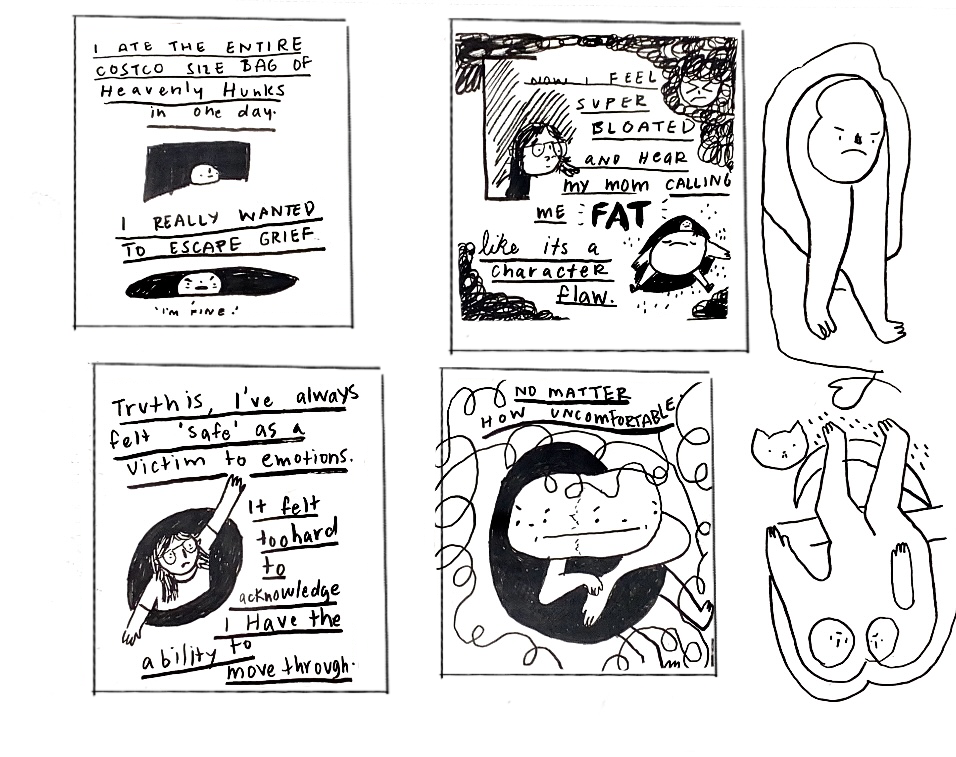 I ATE THE ENTIRE
COSTCO SIZE BAG OF
Heavenly Hunks
in one day.
I REALLY WANTED
TO ESCAPE GRIEF
"I'M FINE."
NOW I FEEL
SUPER
BLOATED
AND HEAR
my mom CALLING
ME FAT
like its a
character
flaw.
Truth is, I've always
felt 'safe' as a
victim to emotions.
It felt
too hard
to
acknowledge
I Have the
ability to
move through.
NO MATTER
HOW UNCOMFORTABLE.